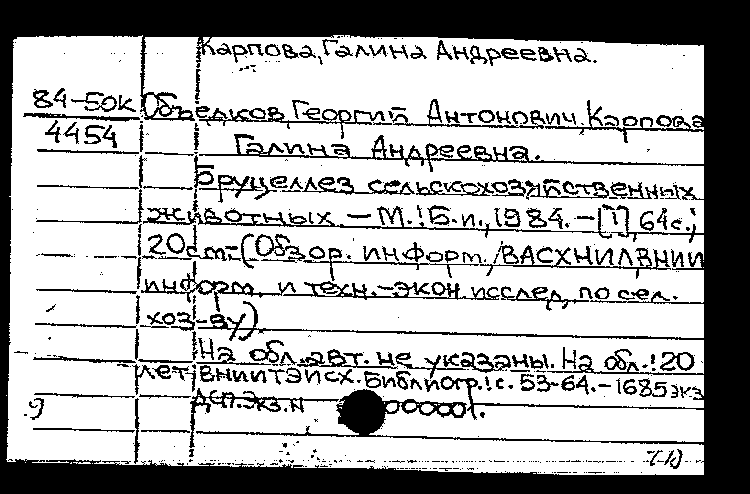 Карпова, Галина Андреевна.
84-50К Объедков, Георгий Антонович, Карпова
4454 Галина Андреевна.
Бруцеллез сельскохозяйственных
животных. - М.: Б.и., 1984. - [1], 64с.;
20см. - (Обзор. информ. / ВАСХНИЛ, ВНИИ
информ. и техн.-экон. исслед. по сел.
хоз-ву).
На обл. авт. не указаны. На обл.: 20
лет ВНИИТЭИСХ. Библиогр.: с. 53-64. - 1685 экз
ДСП. Экз. N 000001.
9